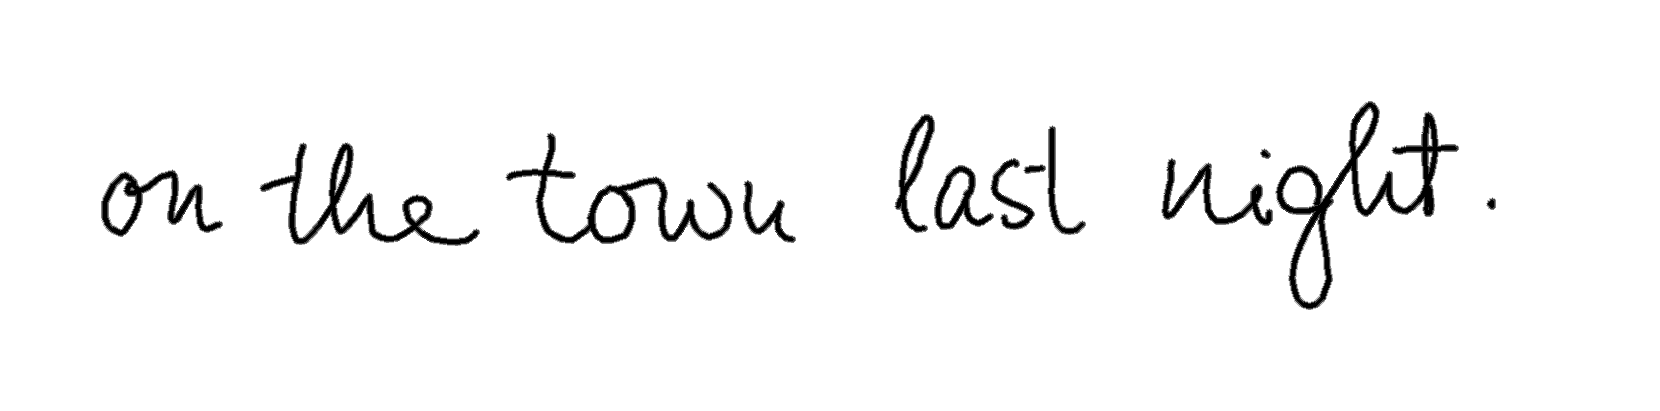 on the town last night.